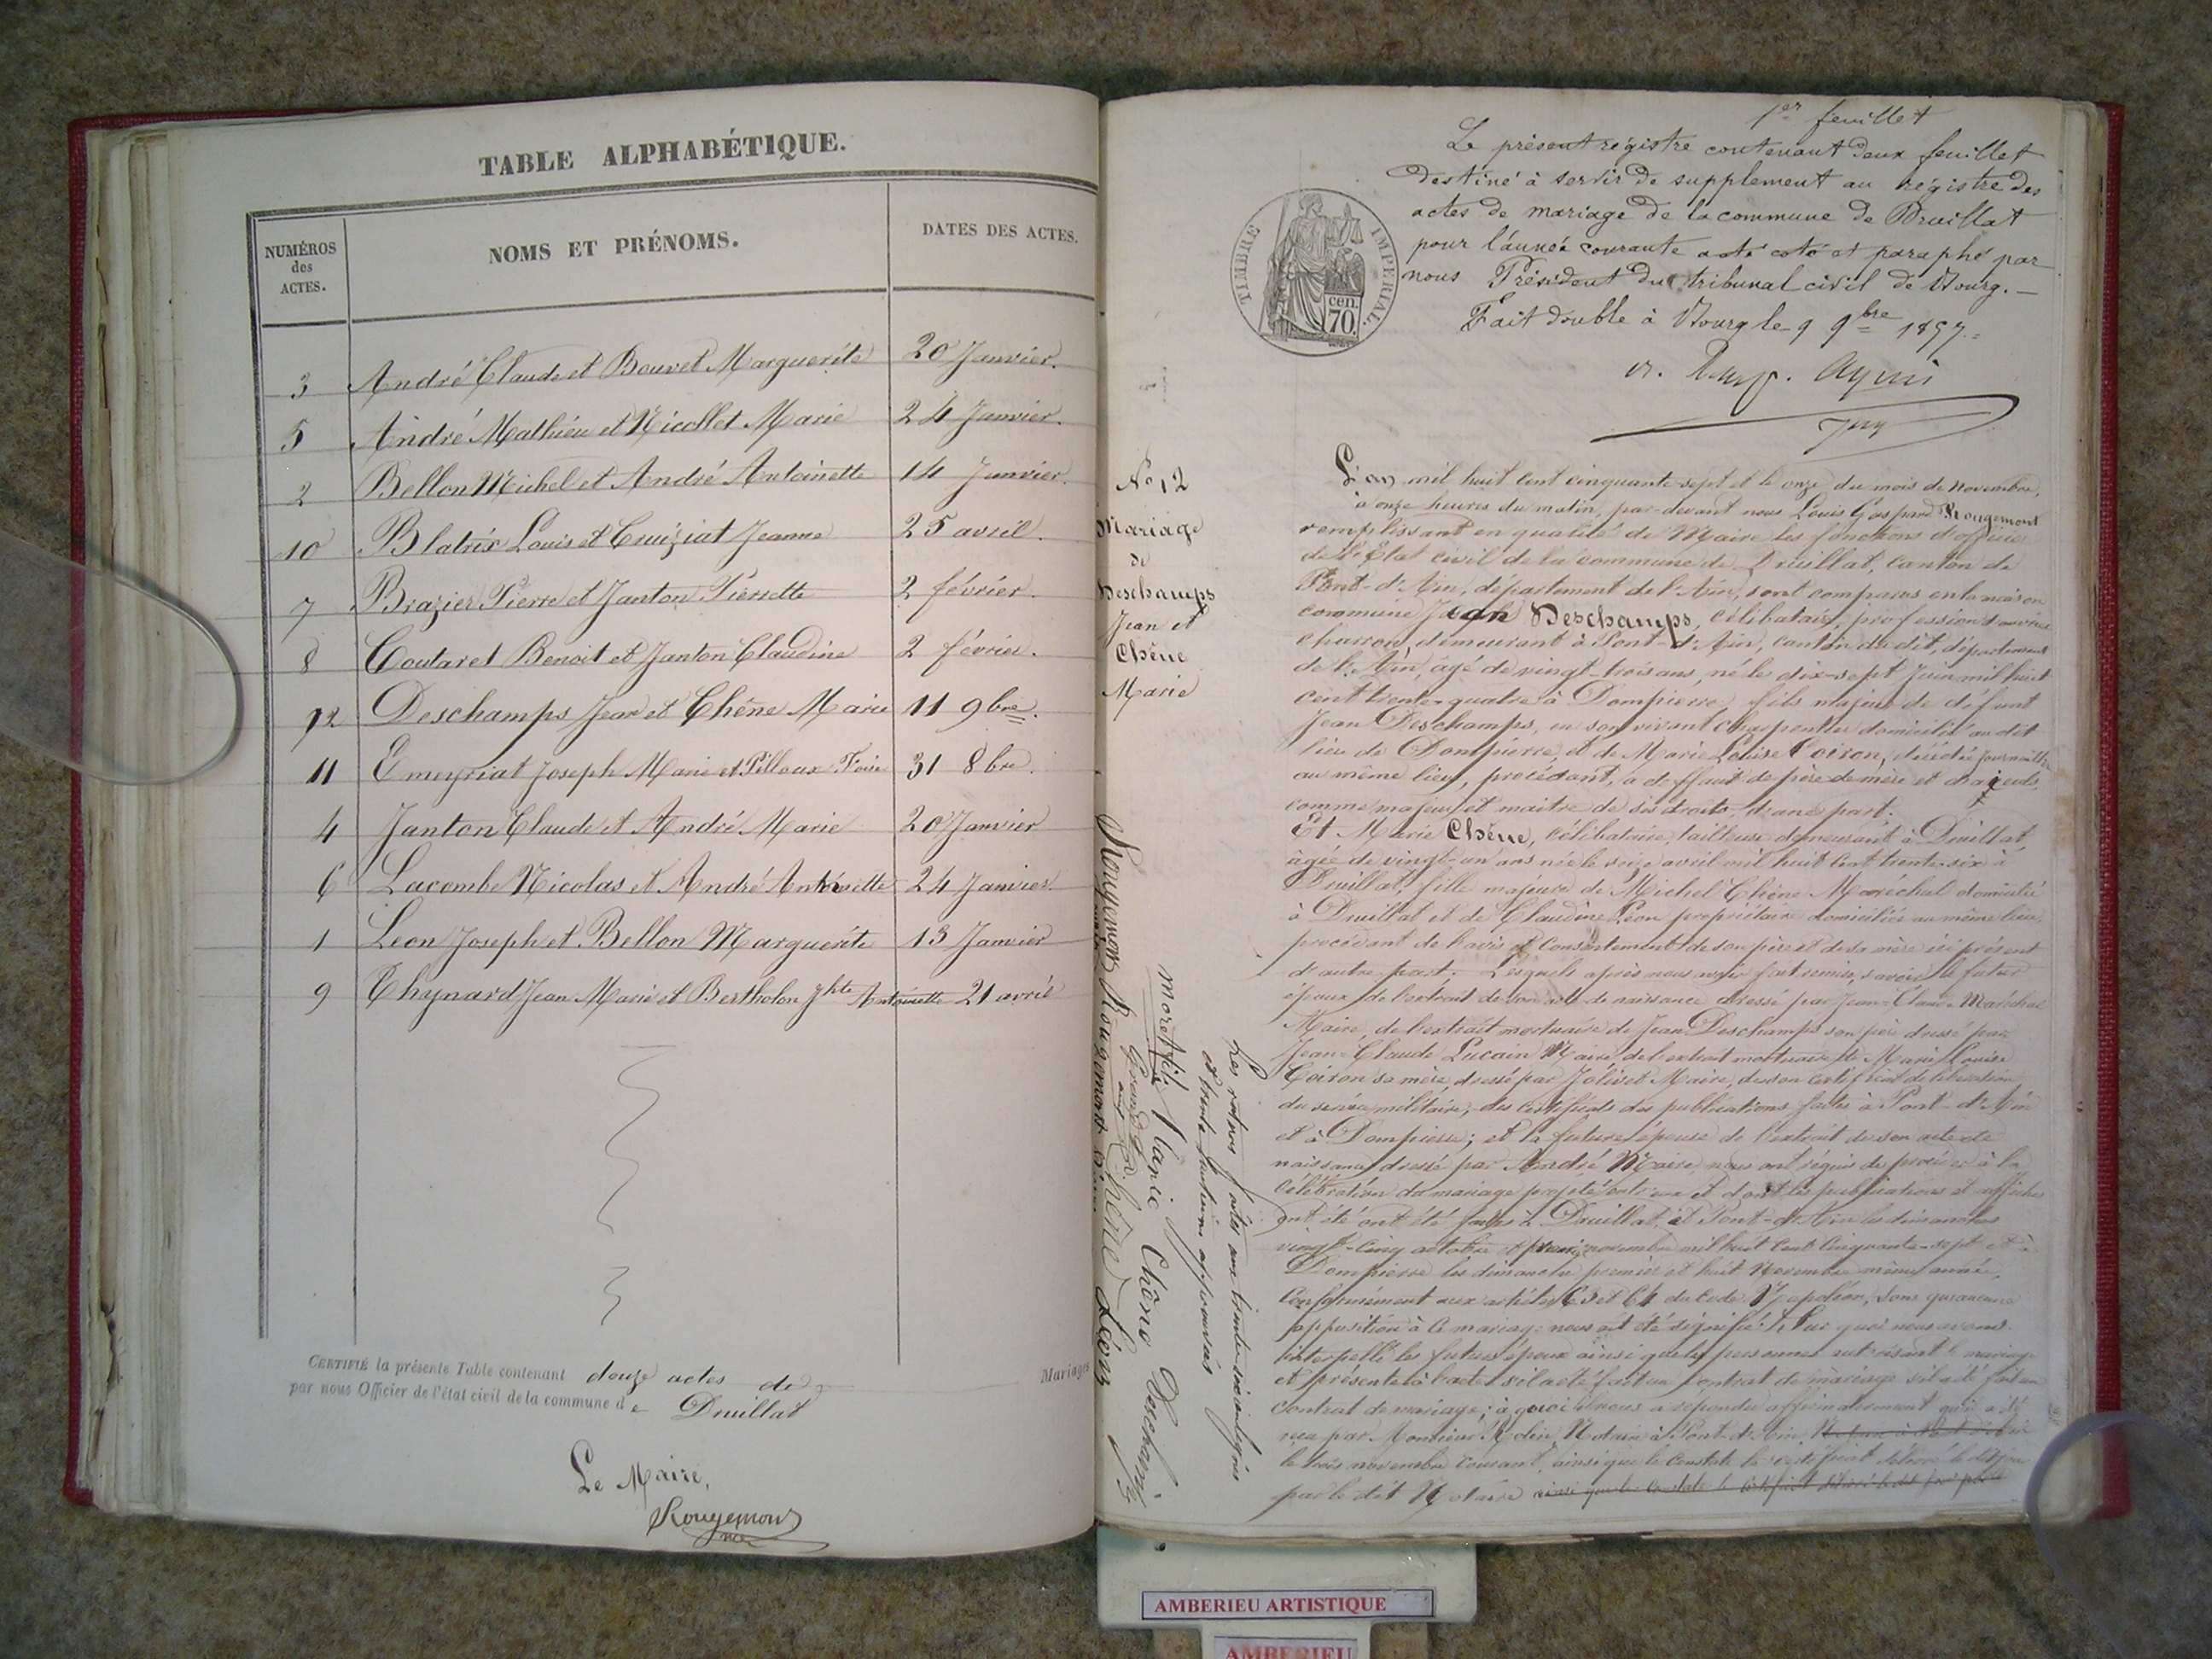 TABLE ALPHABÉTIQUE.
NUMÉROS des ACTES.
NOMS ET PRÉNOMS.
DATES DES ACTES.
3 André Claude et Bouvet Marguerite 20 Janvier.
5 André Mathieu et Nicollet Marie 24 Janvier.
2 Bellon Michel et André Antoinette 14 Janvier.
10 Blatrix Louis et Cruiziat Jeanne 25 avril.
7 Brazier Pierre et Janton Pierrette 2 février.
8 Coutaret Benoit et Janton Claudine 2 février.
12 Deschamps Jean et Chêne Marie 11 9bre.
11 Emeyriat Joseph Marie et Pilloux 31 8bre.
4 Janton Claude et André Marie 20 Janvier
6 Lacombe Nicolas et André Antoinette 24 Janvier.
1 Leon Joseph et Bellon Marguerite 13 Janvier
9 Thynard Jean Marie et Bertholon Antoinette 21 avril
CERTIFIÉ la présente Table contenant douze actes de Mariages
par nous Officier de l'état civil de la commune de Druillat
Le Maire,
Rougemont
1er feuillet
Le présent régistre contenant deux feuillet
destiné à servir de supplement au régistre des
actes de mariage de la commune de Druillat
pour l'année courante a été coté et paraphé par
nous Président du tribunal civil de Bourg.
Fait double à Bourg le 9 9bre 1857.
TIMBRE IMPERIAL.
cen.
70.
No 12
Mariage
de
Deschamps
Jean et
Chêne
Marie
L'an mil huit cent cinquante-sept et le onze du mois de novembre,
à onze heures du matin, par-devant nous Louis Gaspard Rougemont
remplissant en qualité de Maire les fonctions d'officier
de l'Etat civil de la commune de Druillat, canton de
Pont-d'Ain, département de l'Ain, sont comparus en la maison
commune Jean Deschamps, célibataire, profession d'ouvrier
charron, demeurant à Pont-d'Ain, canton du dit, département
de l'Ain, agé de vingt-trois ans, né le dix-sept Juin mil huit
cent trente-quatre à Dompierre, fils majeur de défunt
Jean Deschamps, en son vivant charpentier domicilié au dit
lieu de Dompierre, et de Marie Louise Coiron, décédée journalière
au même lieu, procédant, a deffaut de père de mère et d'aïeuls,
comme majeur et maitre de ses droits, d'une part.
Et Marie Chêne, célibataire, tailleuse demeurant à Druillat
âgée de vingt-un ans née le seize avril mil huit cent trente-six à
Druillat, fille majeure de Michel Chêne Maréchal domicilié
à Druillat et de Claudine Léon propriétaire domiciliée au même lieu,
procédant de l'avis et consentement de son père et de sa mère ici présent
d'autre part. Lesquels après nous avoir fait remise, savoir le futur
époux de l'extrait de son acte de naissance dressé par Jean-Claude Maréchal
Maire, de l'extrait mortuaire de Jean Deschamps son père dressé par
Jean-Claude Lucain Maire, de l'extrait mortuaire de Marie Louise
Coiron sa mère, dressé par Jolivet Maire, de son certificat de libération
du service militaire, des certificats des publications faites à Pont-d'Ain
et à Dompierre; et la future épouse de l'extrait de son acte de
naissance dressé par André Maire, nous ont réquis de procéder à la
célébration du mariage projeté entre eux et dont les publications et affiches
ont été ont été faites à Druillat, et Pont-d'Ain les dimanches
vingt-cinq octobre et premier novembre mil huit cent cinquante-sept et à
Dompierre les dimanches premier et huit Novembre même année,
conformément aux articles 63 et 64 du code Napoléon, sans qu'aucune
opposition à ce mariage nous ait été signifiée. Sur quoi nous avons
interpellé les futurs époux ainsi que les personnes autorisant le mariage
et présentes à l'acte s'il a été fait un contrat de mariage s'il a été fait un
contrat de mariage; à quoi il nous a répondu affirmativement qu'il a été
reçu par Monsieur Notaire à Pont-d'Ain
le trois novembre courant, ainsi que le constate le certificat délivré le dit jour
par le dit Notaire ainsi que le constate le certificat délivré le dit jour par
Les ratures faites aux
et trente huitième approuvées
Marie Chêne Deschamps
Chêne Léon
Rougemont
Rougemont
AMBERIEU ARTISTIQUE
AMBERIEU